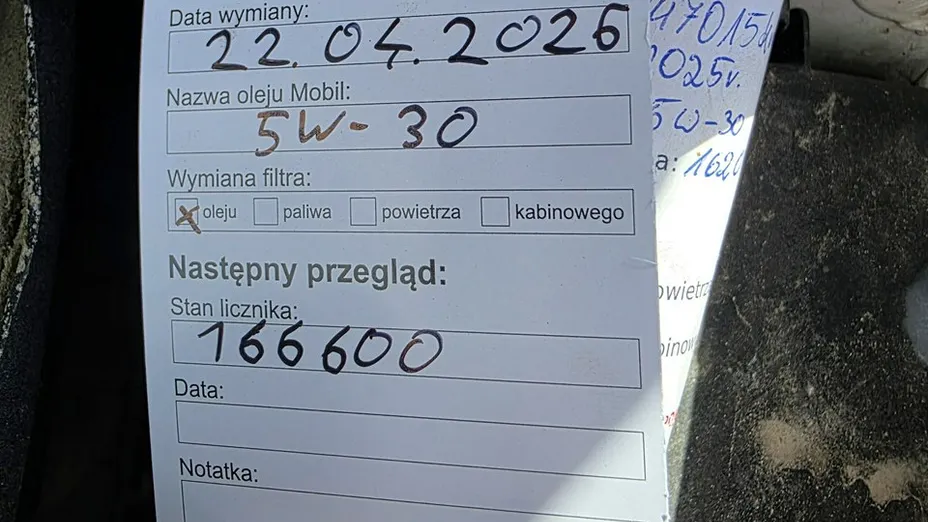 Data wymiany:
22.04.2026
Nazwa oleju Mobil:
5W-30
Wymiana filtra:
x oleju paliwa powietrza kabinowego
Następny przegląd:
Stan licznika:
166600
Data:
Notatka:
47015
2025r.
5W-30
a: 1620
owietrz
binow